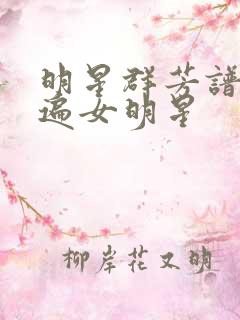 明星群芳譜
遍女明星
柳岸花又明